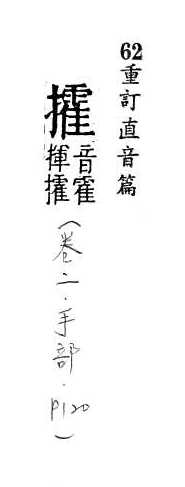 62重訂直音篇
攉
音霍
揮攉
（卷二．手部．P120）